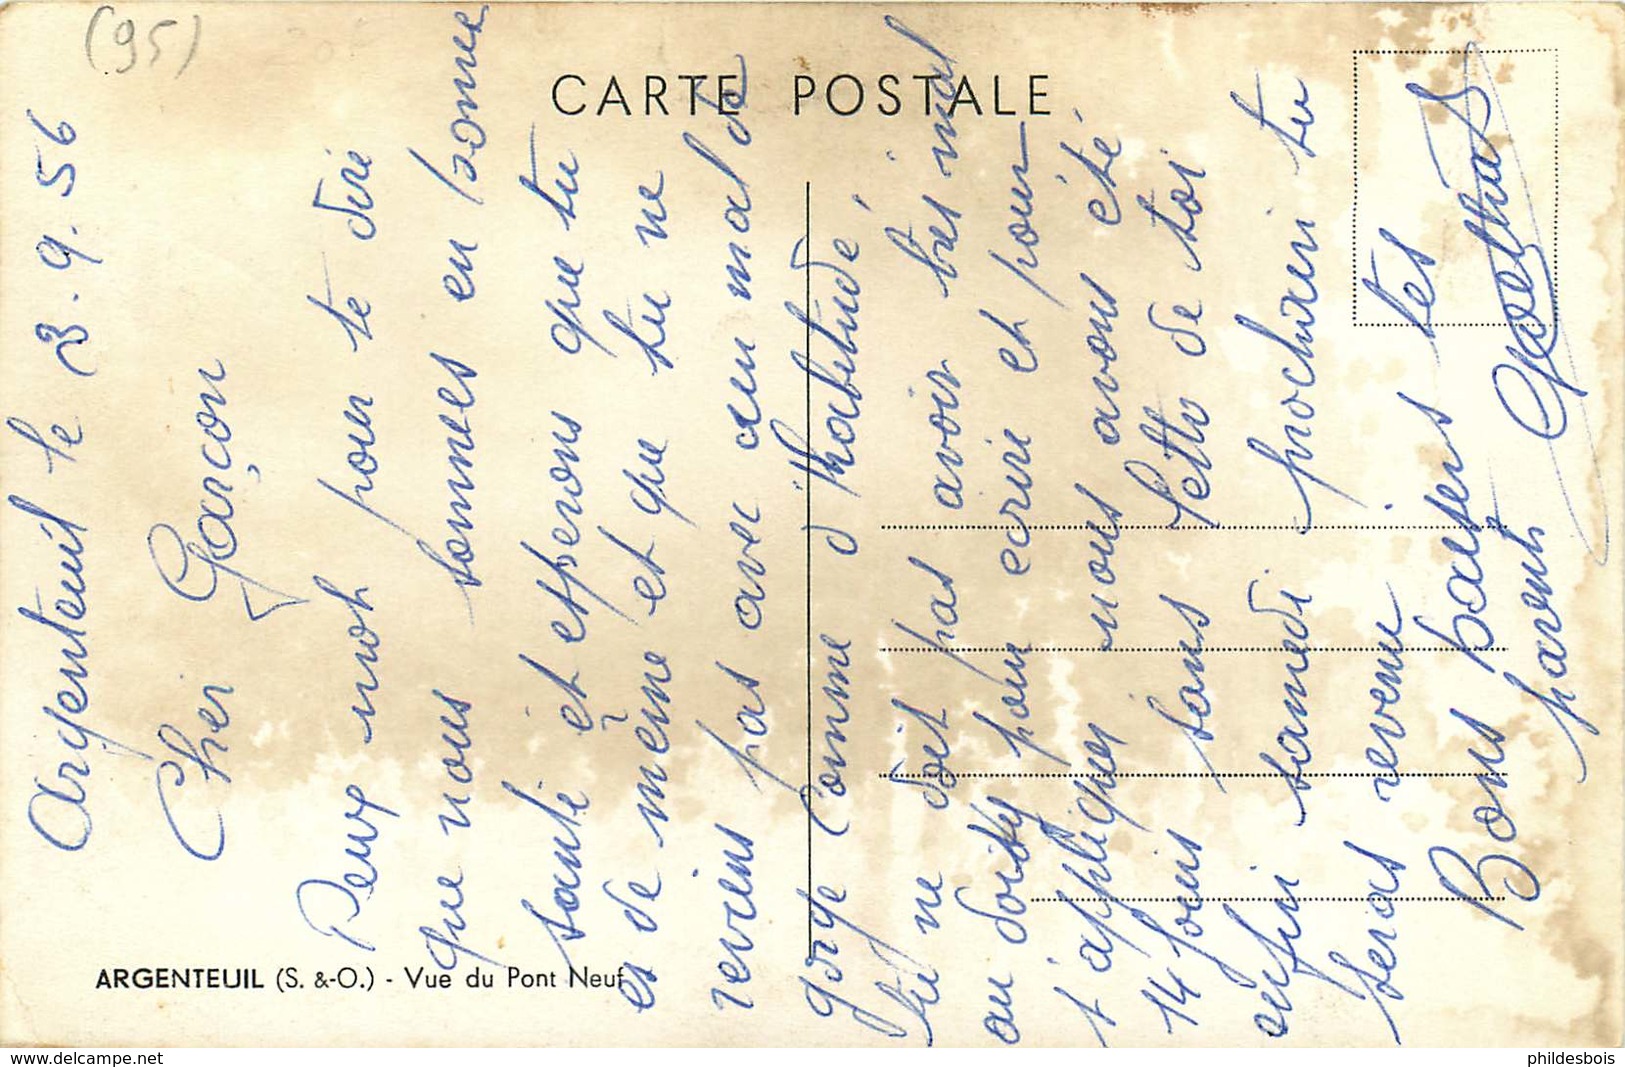 (95)
CARTE POSTALE
Argenteuil le 3.9.56
Cher Garçon
Deux mot pour te dire
que nous sommes en bonne
santé et esperons que tu
es de même et que tu ne
reviens pas avec un mal de
gorge comme d'habitude
tu ne doit pas avoir tres mal
au doigts pour ecrire et pour
t'appliquer nous avons été
14 jours sans lettre de toi
enfin samedi prochain tu
seras revenu
Bons baisers tes
parents
ARGENTEUIL (S. &-O.) - Vue du Pont Neuf
www.delcampe.net
phildesbois